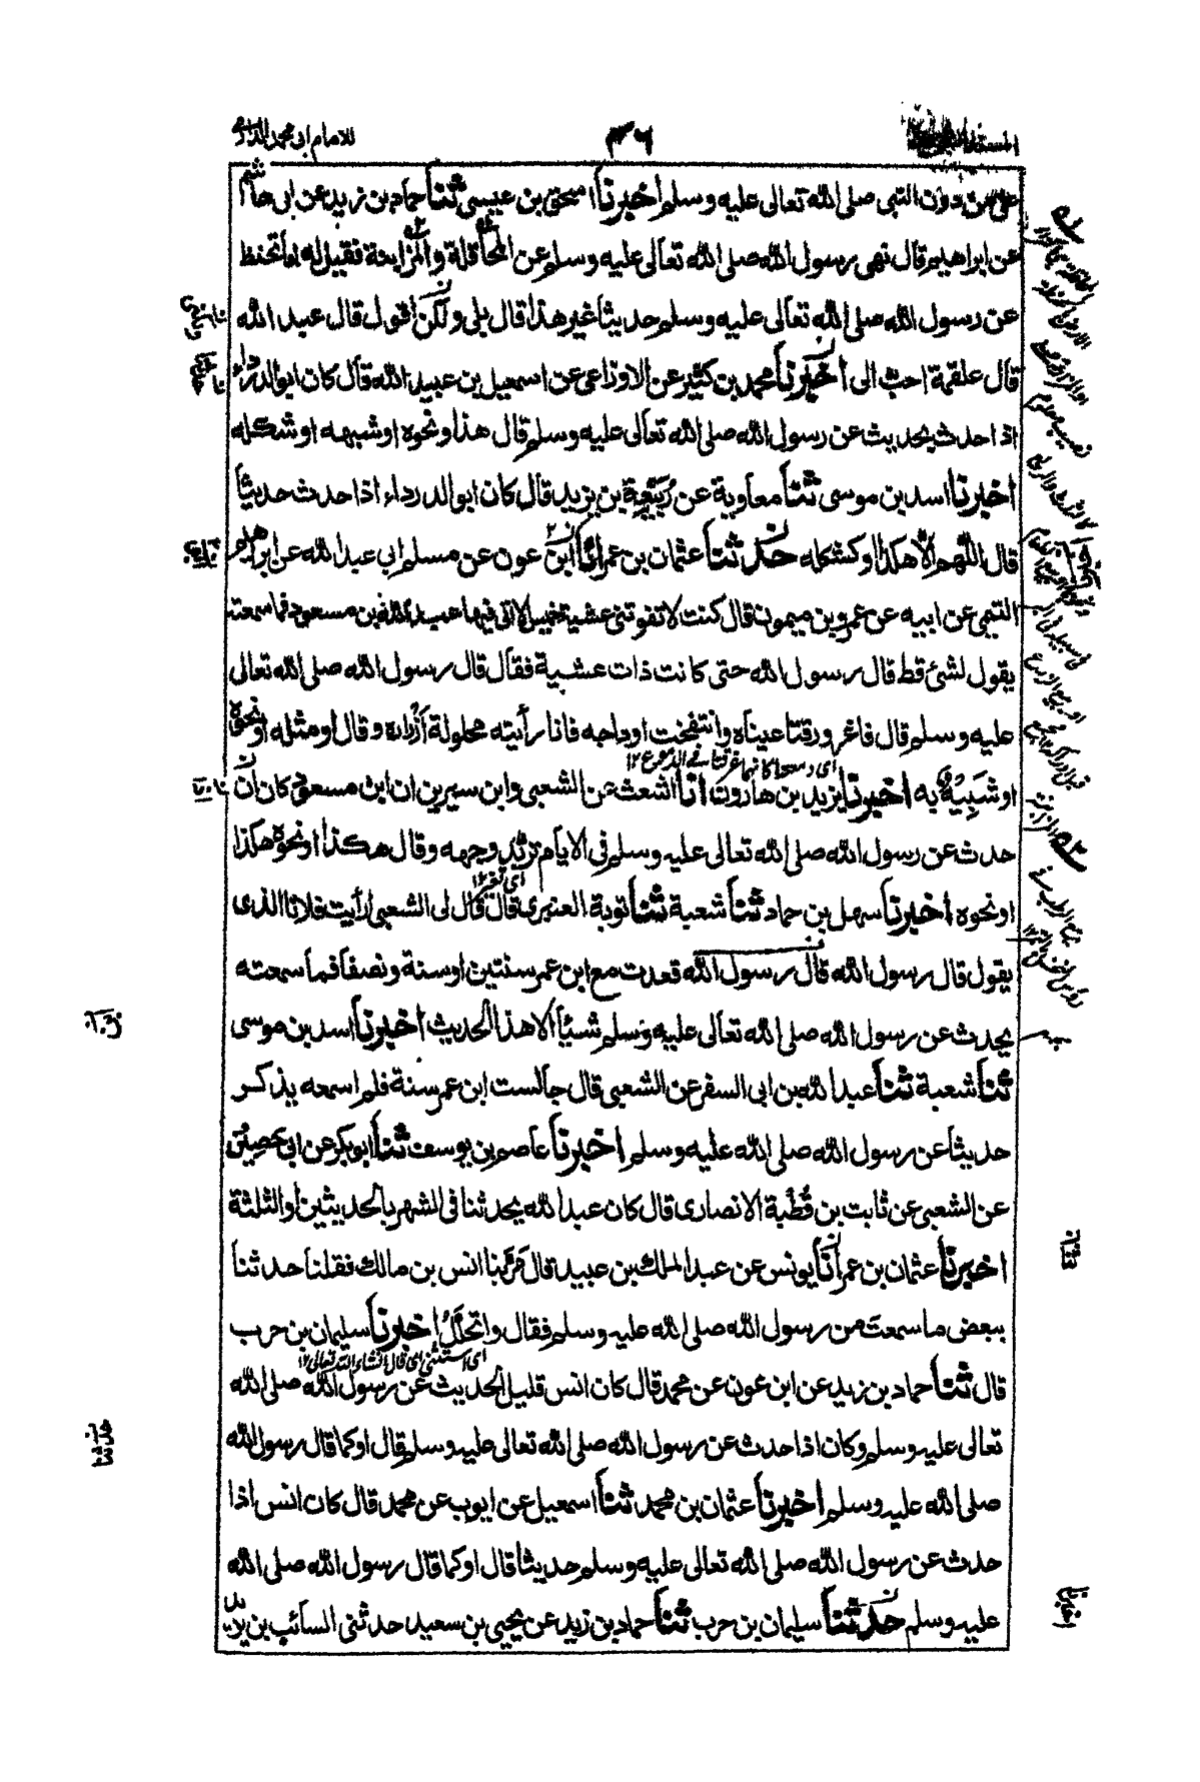 للامام ابى محمد الدارمى
٣٦
على من دون النبى صلى الله تعالى عليه وسلم اخبرنا اسحق بن عيسى ثنا حماد بن زيد عن ابى هاشم
عن ابراهيم قال نهى رسول الله صلى الله تعالى عليه وسلم عن المحاقلة والمزابنة فقيل له اما تحفظ
عن رسول الله صلى الله تعالى عليه وسلم حديثا غير هذا قال بلى ولكن اقول قال عبد الله
قال علقمة احب الى اخبرنا محمد بن كثير عن الاوزاعى عن اسمعيل بن عبيد الله قال كان ابو الدرداء
اذا حدث بحديث عن رسول الله صلى الله تعالى عليه وسلم قال هذا ونحوه او شبهه او شكله
اخبرنا اسد بن موسى ثنا معاوية عن رَبِيْعَة بن يزيد قال كان ابو الدرداء اذا حدث حديثاً
قال اللّٰهم الّا هكذا او كشكله حدثنا عثمان بن عمر انا ابن عون عن مسلم ابى عبد الله عن ابراهيم
التيمى عن ابيه عن عمرو بن ميمون قال كنت لا تفوتنى عشية خميس الا اتى فيها عبد الله بن مسعود فما سمعته
يقول لشئ قط قال رسول الله حتى كانت ذات عشية فقال قال رسول الله صلى الله تعالى
عليه وسلم قال فاغرورقتا عيناه وانتفخت اوداجه فانا رأيته محلولة اَزْرَاره وقال او مثله او نحوه
او شَبِيْهٌ به اخبرنا يزيد بن هارون انا اشعث عن الشعبى وابن سيرين ان ابن مسعود كان ان
حدث عن رسول الله صلى الله تعالى عليه وسلم فى الايام تربد وجهه وقال هكذا او نحوه هكذا
اى تغير ١٢
او نحوه اخبرنا سهل بن حماد ثنا شعبة ثنا توبة العنبرى قال قال لى الشعبى ارأيت فلانا الذى
يقول قال رسول الله قال رسول الله قعدت مع ابن عمر سنتين او سنة ونصفا فما سمعته
يحدث عن رسول الله صلى الله تعالى عليه وسلم شيئا الا هذا الحديث اخبرنا اسد بن موسى
ثنا شعبة ثنا عبد الله بن ابى السفر عن الشعبى قال جالست ابن عمر سنة فلم اسمعه يذكر
حديثا عن رسول الله صلى الله عليه وسلم اخبرنا عاصم بن يوسف ثنا ابو بكر عن ابى حصين
عن الشعبى عن ثابت بن قُطْبَة الانصارى قال كان عبد الله يحدثنا فى الشهر بالحديثين او الثلثة
اخبرنا عثمان بن عمر انا يونس عن عبد الملك بن عبيد قال مَرَّ بنا انس بن مالك فقلنا حدثنا
ببعض ما سمعت من رسول الله صلى الله عليه وسلم فقال واتحلَّلُ اخبرنا سليمان بن حرب
اى استثنى اى قال انشاء الله تعالى ١٢
قال ثنا حماد بن زيد عن ابن عون عن محمد قال كان انس قليل الحديث عن رسول الله صلى الله
تعالى عليه وسلم وكان اذا حدث عن رسول الله صلى الله تعالى عليه وسلم قال او كما قال رسول الله
صلى الله عليه وسلم اخبرنا عثمان بن محمد ثنا اسمعيل عن ايوب عن محمد قال كان انس اذا
حدث عن رسول الله صلى الله تعالى عليه وسلم حديثا قال او كما قال رسول الله صلى الله
عليه وسلم حدثنا سليمان بن حرب ثنا حماد بن زيد عن يحيى بن سعيد حدثنى السائب بن يزيد